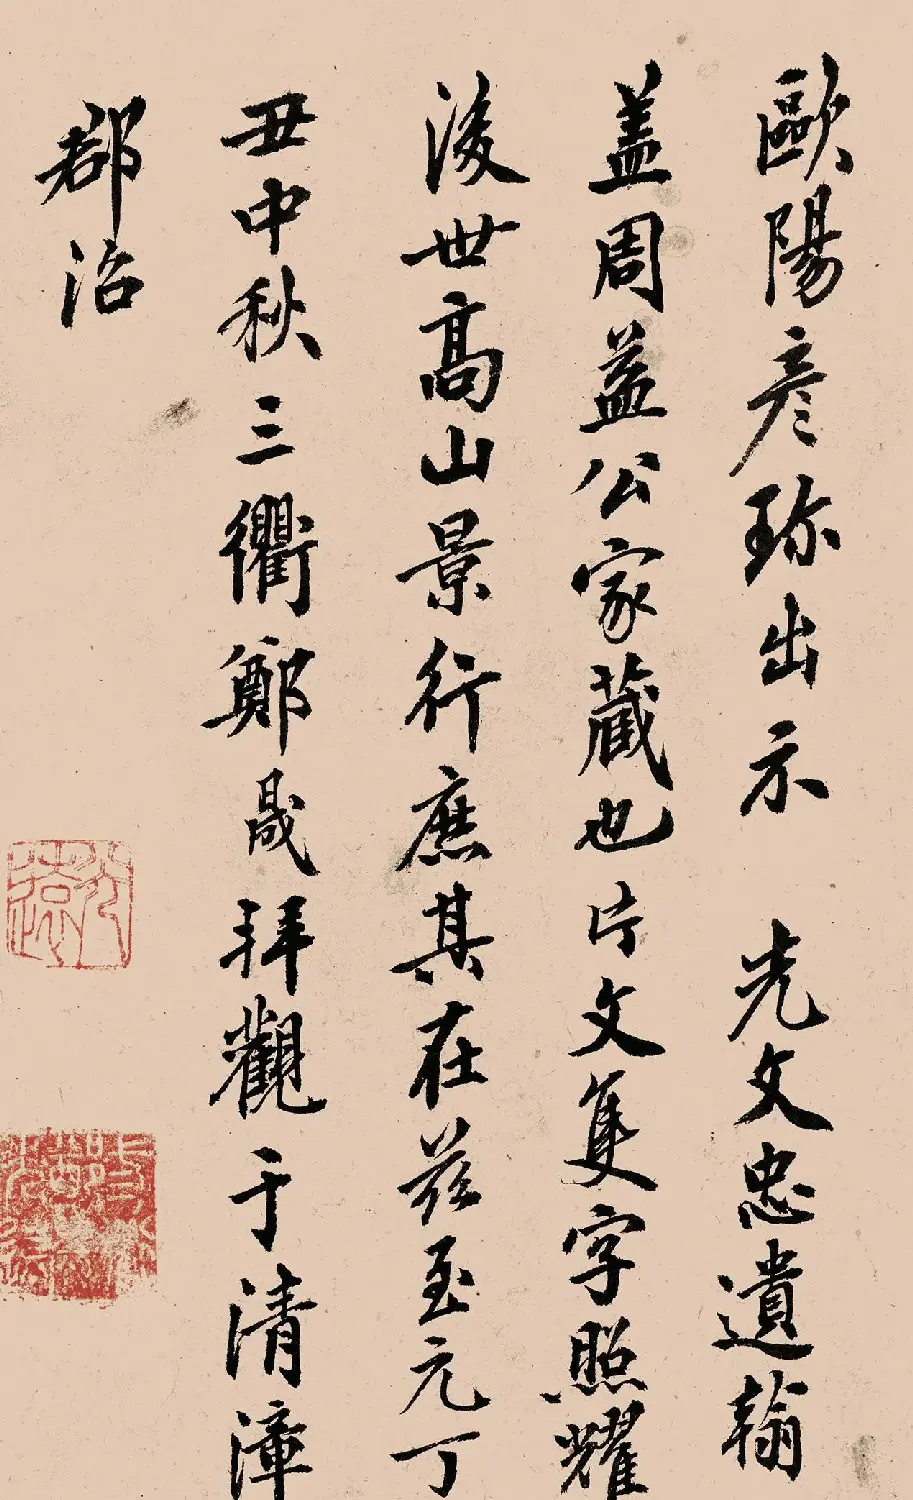 歐陽彦珎出示 先文忠遺翰
盖周益公家蔵也片文隻字照耀
後世髙山景行庶其在兹至元丁
丑中秋三衢鄭晟拜觀于清漳
郡治